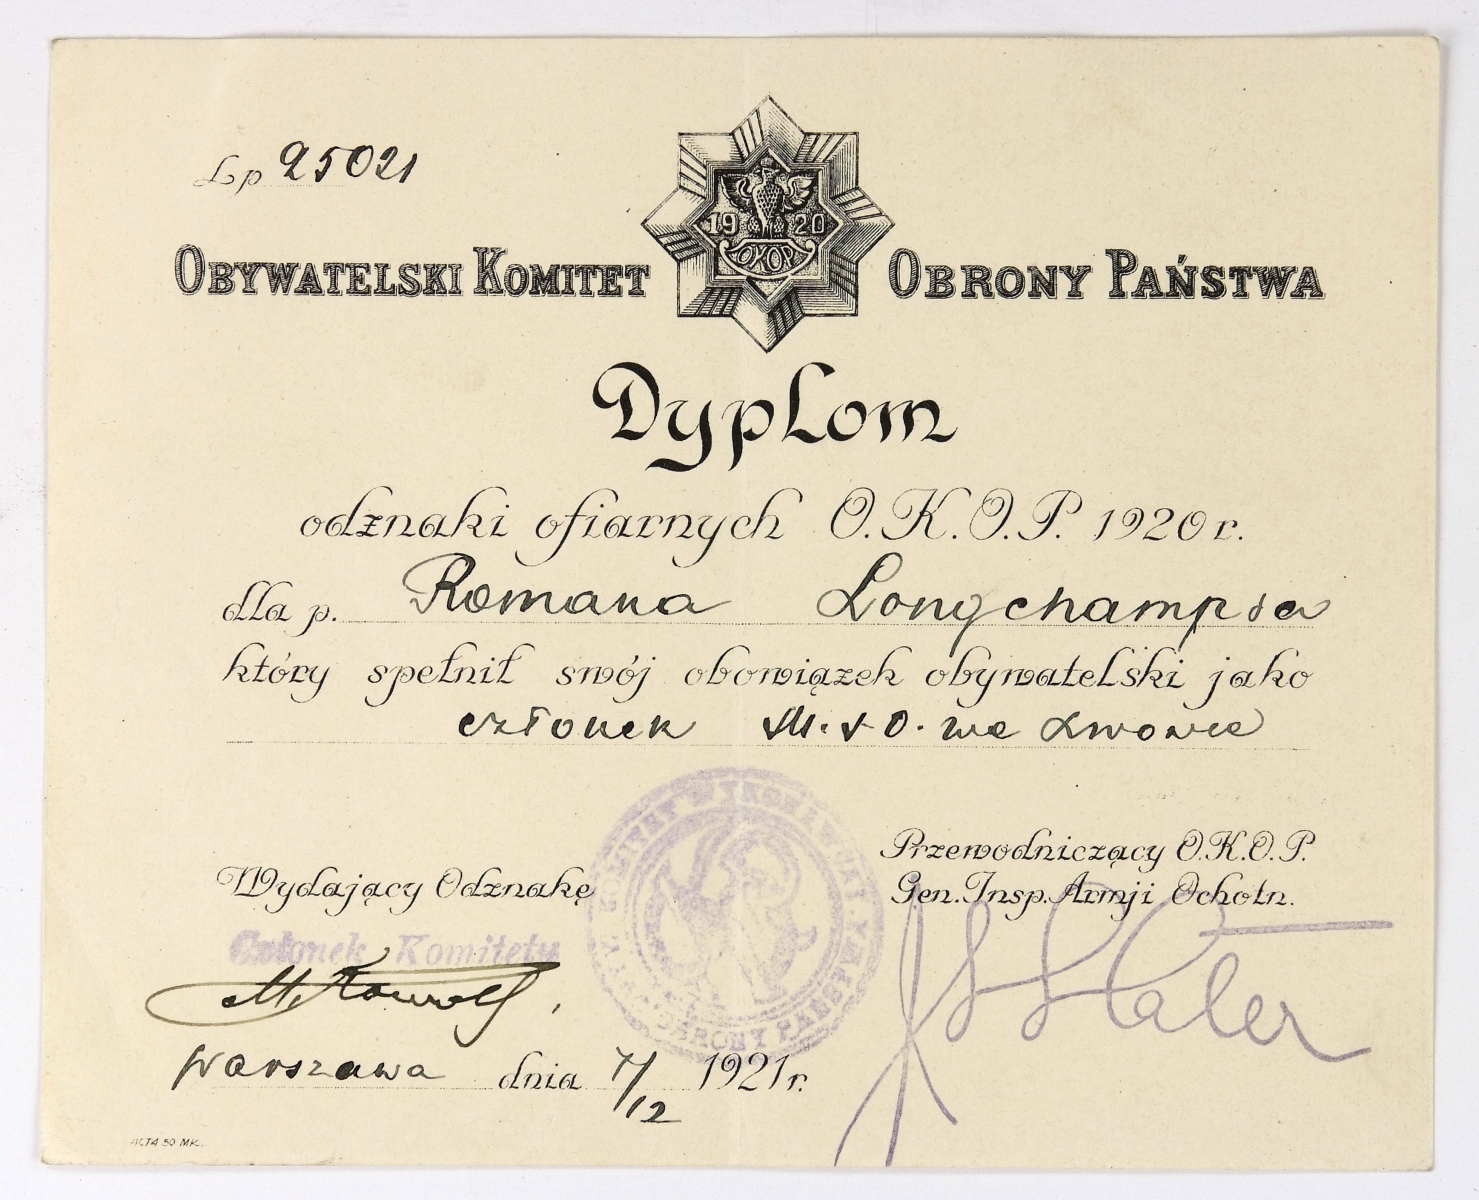 Lp 25021
19 20
OKOP
OBYWATELSKI KOMITET OBRONY PAŃSTWA
Dyplom
odznaki ofiarnych O.K.O.P. 1920 r.
dla p. Romana Longchampsa
który spełnił swój obowiązek obywatelski jako
członek M.S.O. we Lwowie
KOMITET WYKONAWCZY OBRONY PAŃSTWA
Przewodniczący O.K.O.P.
Wydający Odznakę
Gen. Insp. Armji Ochotn.
Członek Komitetu
Warszawa dnia 7/12 1921 r.
ACTA 50 MK.